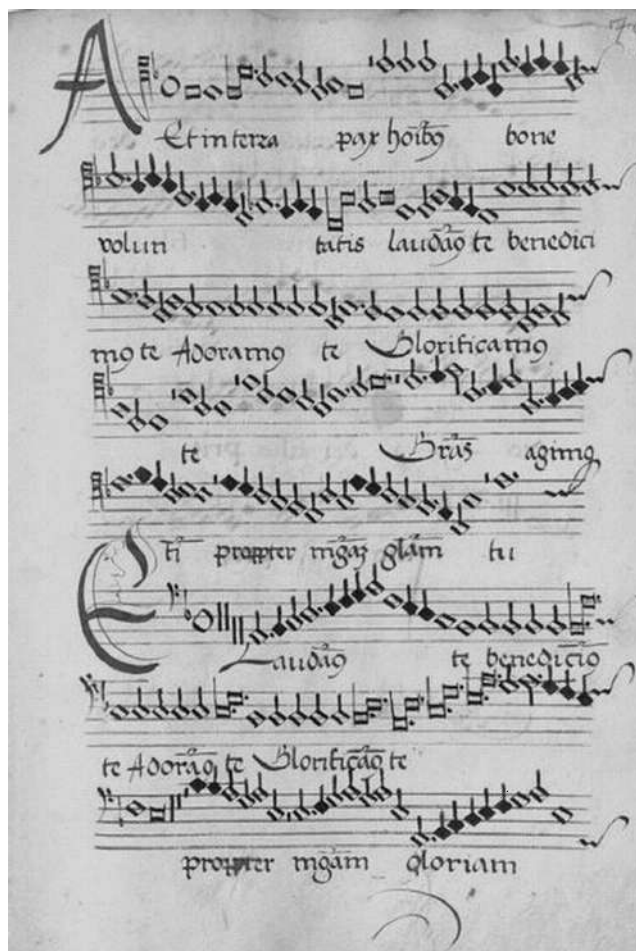 A Et in terra pax hoĩbꝯ bone
volun tatis laudãꝯ te benedici
mꝯ te Adoramꝯ te Glorificamꝯ
te Grãs agimꝯ
tĩ propter mgãʒ glãm tu
E Laudãꝯ te benedicĩꝯ
te Adorãꝯ te Glorificãꝯ te
propter mgãm gloriam